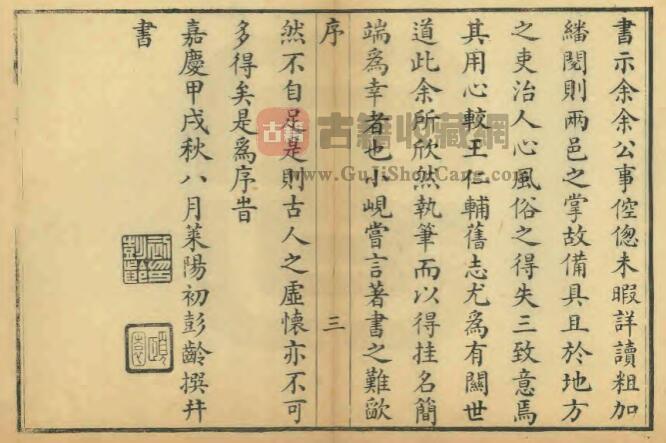 書示余余公事倥偬未暇詳讀粗加
繙閱則兩邑之掌故備具且於地方
之吏治人心風俗之得失三致意焉
其用心較王仁輔舊志尤爲有關世
道此余所欣然執筆而以得挂名簡
端爲幸者也小峴嘗言著書之難欿
序 三
然不自足是則古人之虛懷亦不可
多得矣是爲序旹
嘉慶甲戌秋八月萊陽初彭齡撰幷
書
古籍
古籍收藏網
www.GuJiShouCang.com